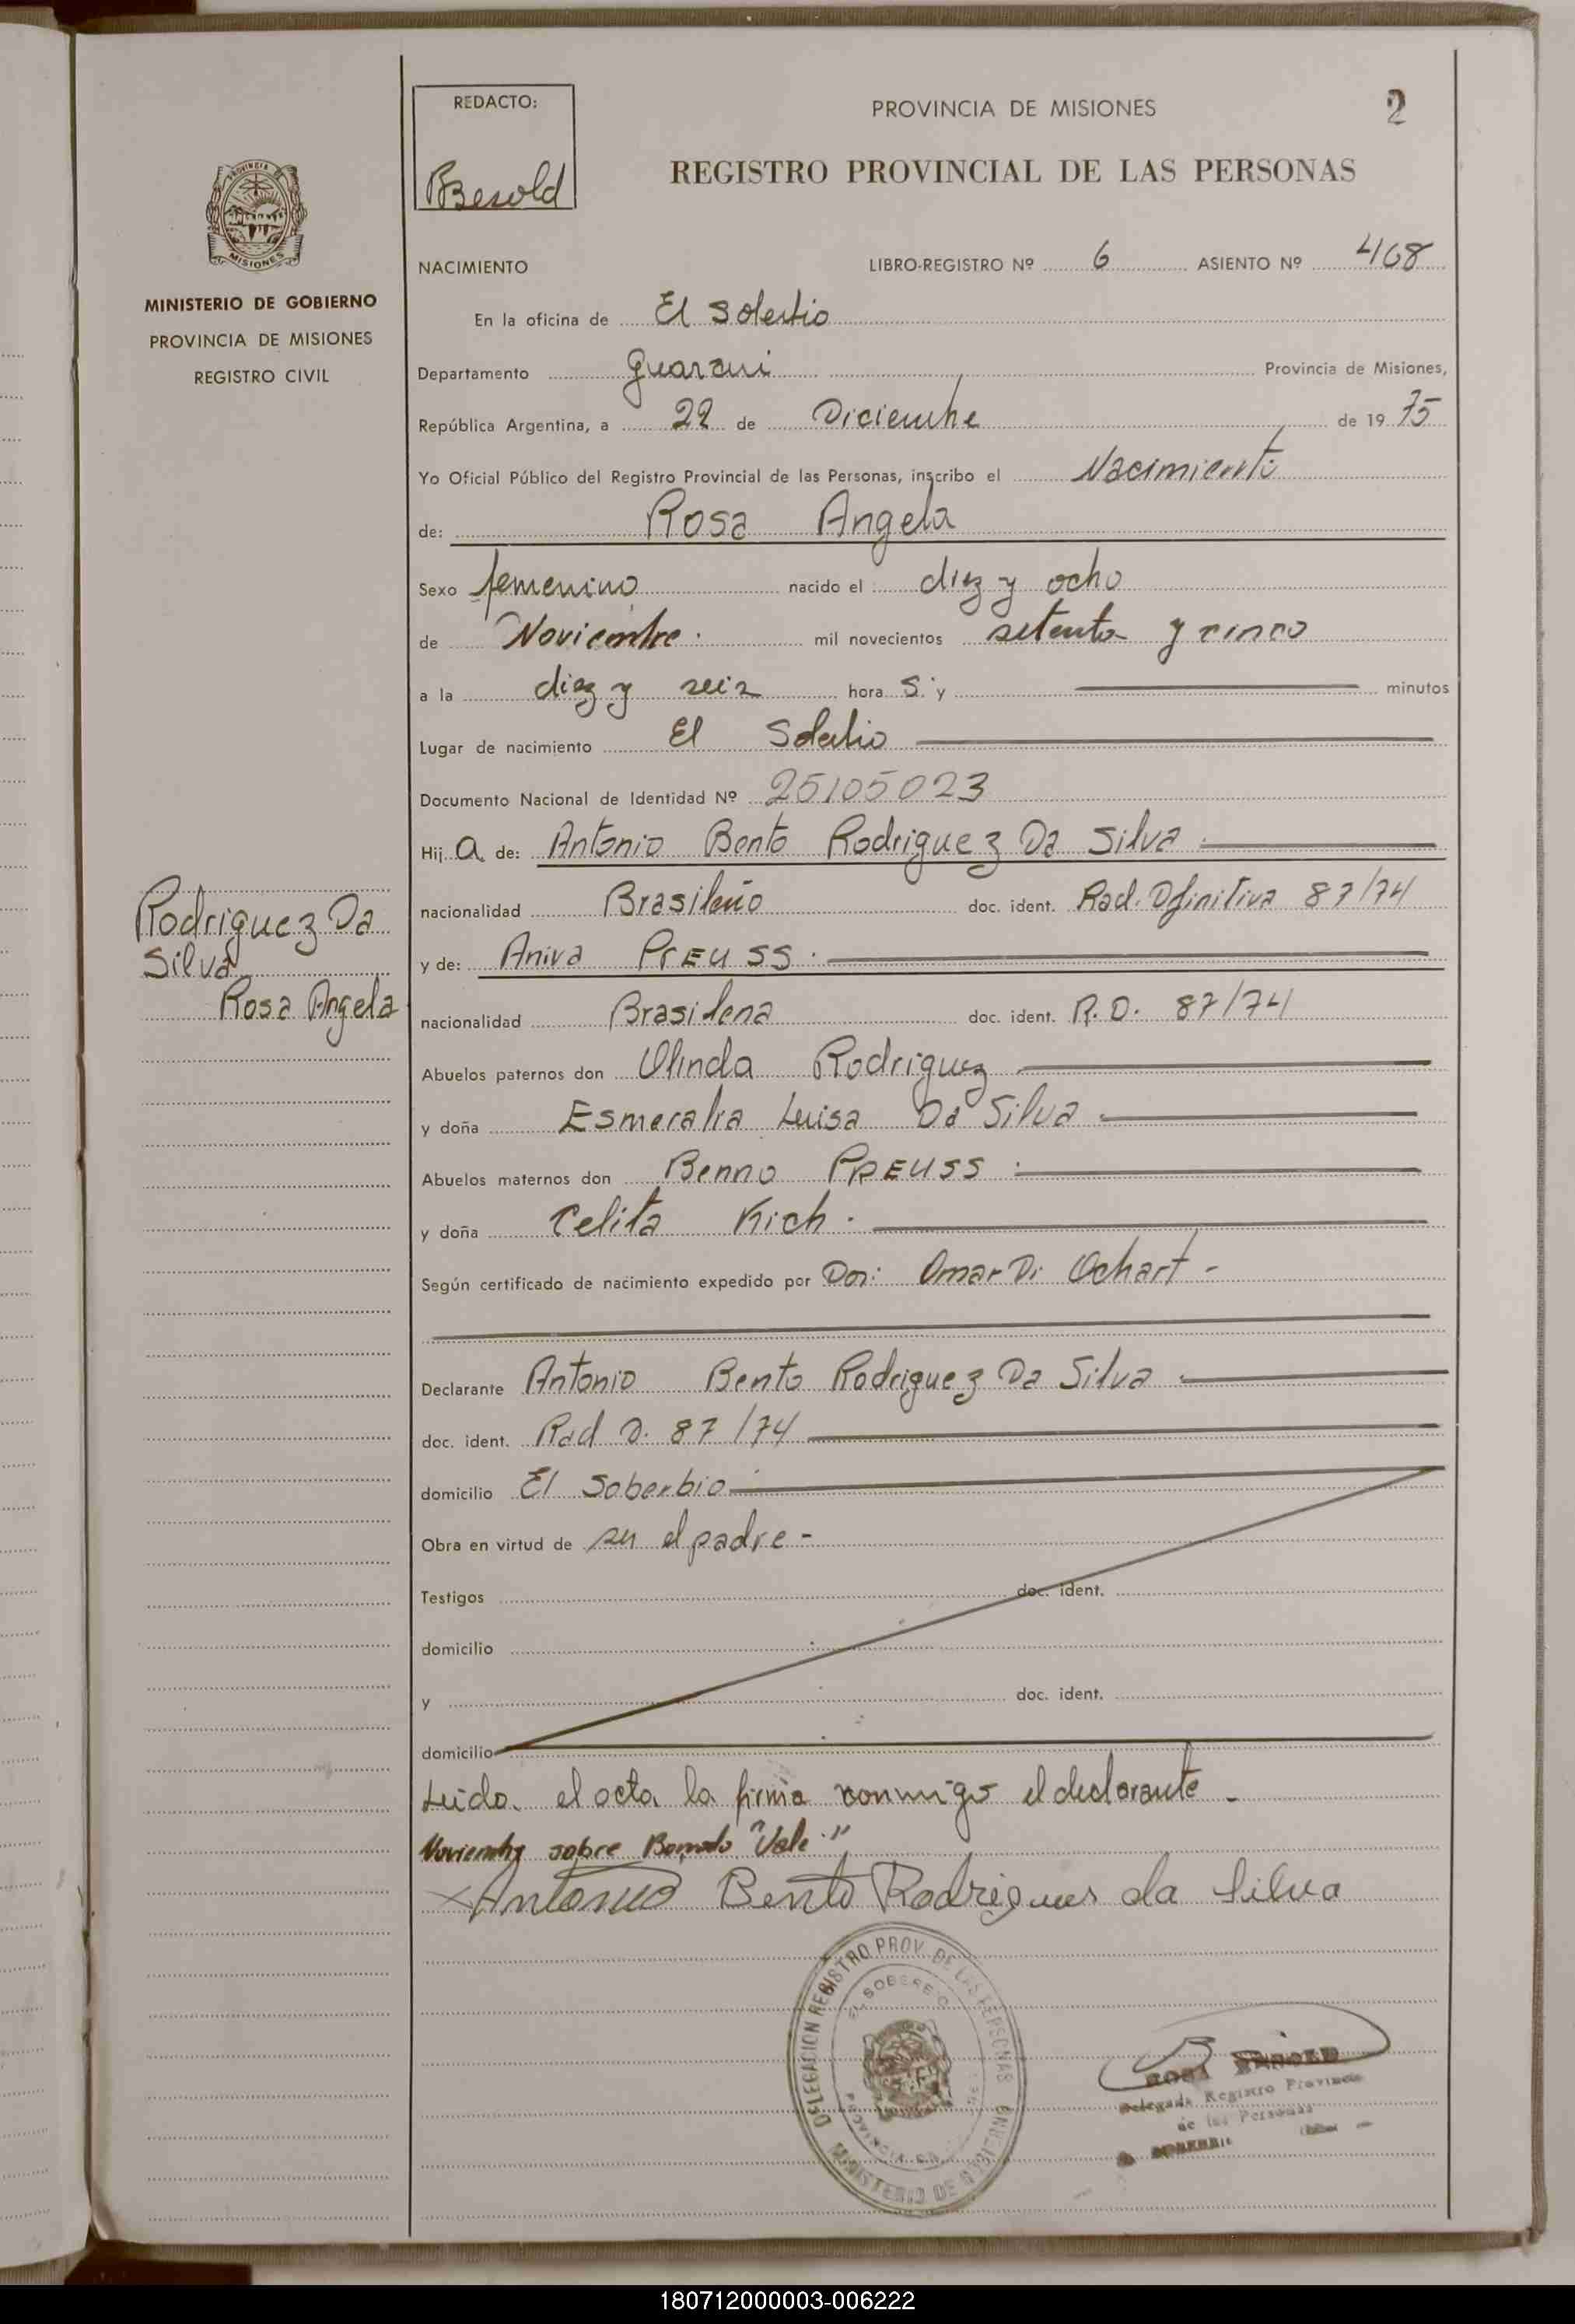 REDACTO:
Besold
PROVINCIA DE MISIONES
2
REGISTRO PROVINCIAL DE LAS PERSONAS
PROVINCIA DE
MISIONES
MINISTERIO DE GOBIERNO
PROVINCIA DE MISIONES
REGISTRO CIVIL
NACIMIENTO LIBRO-REGISTRO Nº 6 ASIENTO Nº 468
En la oficina de El Soberbio
Departamento Guarani Provincia de Misiones,
República Argentina, a 22 de Diciembre de 19 75
Yo Oficial Público del Registro Provincial de las Personas, inscribo el Nacimiento
de: Rosa Angela
Sexo femenino nacido el diez y ocho
de Noviembre. mil novecientos setenta y cinco
a la diez y seis hora s. y minutos
Lugar de nacimiento El Soberbio
Documento Nacional de Identidad Nº 25105023
Hij a de: Antonio Bento Rodriguez Da Silva
nacionalidad Brasileño doc. ident. Rad. Dfinitiva 87/74
y de: Aniva PrEUSS.
nacionalidad Brasilena doc. ident. R.D. 87/74
Abuelos paternos don Olinda Rodriguez
y doña Esmeralia Luisa Da Silva
Abuelos maternos don Benno PREUSS.
y doña Celita Kich.
Según certificado de nacimiento expedido por Omar D. Ochart -
Declarante Antonio Bento Rodriguez Da Silva
doc. ident. Rad D. 87/74
domicilio El Soberbio
Obra en virtud de ser el padre -
Testigos doc. ident.
domicilio
y doc. ident.
domicilio
Leida el acta la firma conmigo el declarante.
Noviembre sobre Borrado "Vale."
Antonio Bento Rodrigues da Silva
Rodriguez Da
Silva
Rosa Angela
DELEGACION REGISTRO PROV. DE LAS PERSONAS
EL SOBERBIO
MINISTERIO DE GOBIERNO
Delegada Registro Provincial
de las Personas
SOBERBIO
180712000003-006222